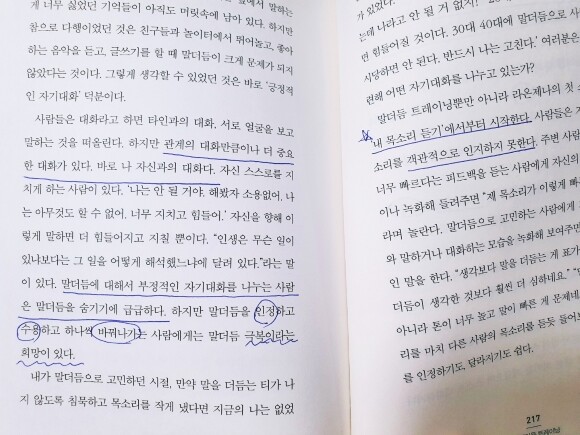 게 너무 싫었던 기억들이 아직도 머릿속에 남아 있다. 하지만
참으로 다행이었던 것은 친구들과 놀이터에서 뛰어놀고, 좋아
하는 음악을 듣고, 글쓰기를 할 때 말더듬이 크게 문제가 되지
않았다는 것이다. 그렇게 생각할 수 있었던 것은 바로 '긍정적
인 자기대화' 덕분이다.
사람들은 대화라고 하면 타인과의 대화, 서로 얼굴을 보고
말하는 것을 떠올린다. 하지만 관계의 대화만큼이나 더 중요
한 대화가 있다. 바로 나 자신과의 대화다. 자신 스스로를 지
치게 하는 사람이 있다. '나는 안 될 거야, 해봤자 소용없어, 나
는 아무것도 할 수 없어, 너무 지치고 힘들어.' 자신을 향해 이
렇게 말하면 더 힘들어지고 지칠 뿐이다. "인생은 무슨 일이
있냐보다는 그 일을 어떻게 해석했느냐에 달려 있다."라는 말
이 있다. 말더듬에 대해서 부정적인 자기대화를 나누는 사람
은 말더듬을 숨기기에 급급하다. 하지만 말더듬을 인정하고
수용하고 하나씩 바꿔나가는 사람에게는 말더듬 극복이라는
희망이 있다.
내가 말더듬으로 고민하던 시절, 만약 말을 더듬는 티가 나
지 않도록 침묵하고 목소리를 작게 냈다면 지금의 나는 없었
가 있었다.
는데 나라고 안 될 거 없지!
면 힘들어질 것이다. 30대 40대에 말더듬으로 사
시당하면 안 된다. 반드시 나는 고친다.' 여러분은
련해 어떤 자기대화를 나누고 있는가?
말더듬 트레이닝뿐만 아니라 라온제나의 첫
'내 목소리 듣기'에서부터 시작한다. 사람들은
소리를 객관적으로 인지하지 못한다. 주변 사람
너무 빠르다는 피드백을 듣는 사람에게 자신의
이나 녹화해 들려주면 "제 목소리가 이렇게
라며 놀란다. 말더듬으로 고민하는 사람에게
와 말하거나 대화하는 모습을 녹화해 보여주면
인 말을 한다. "생각보다 말을 더듬는 게 표가
더듬이 생각한 것보다 훨씬 더 심하네요."
아니라 톤이 너무 높고 말이 빠른 게 문제네
를 마치 다른 사람의 목소리를 듣듯 들어보
를 인정하기도, 달라지기도 쉽다.
217